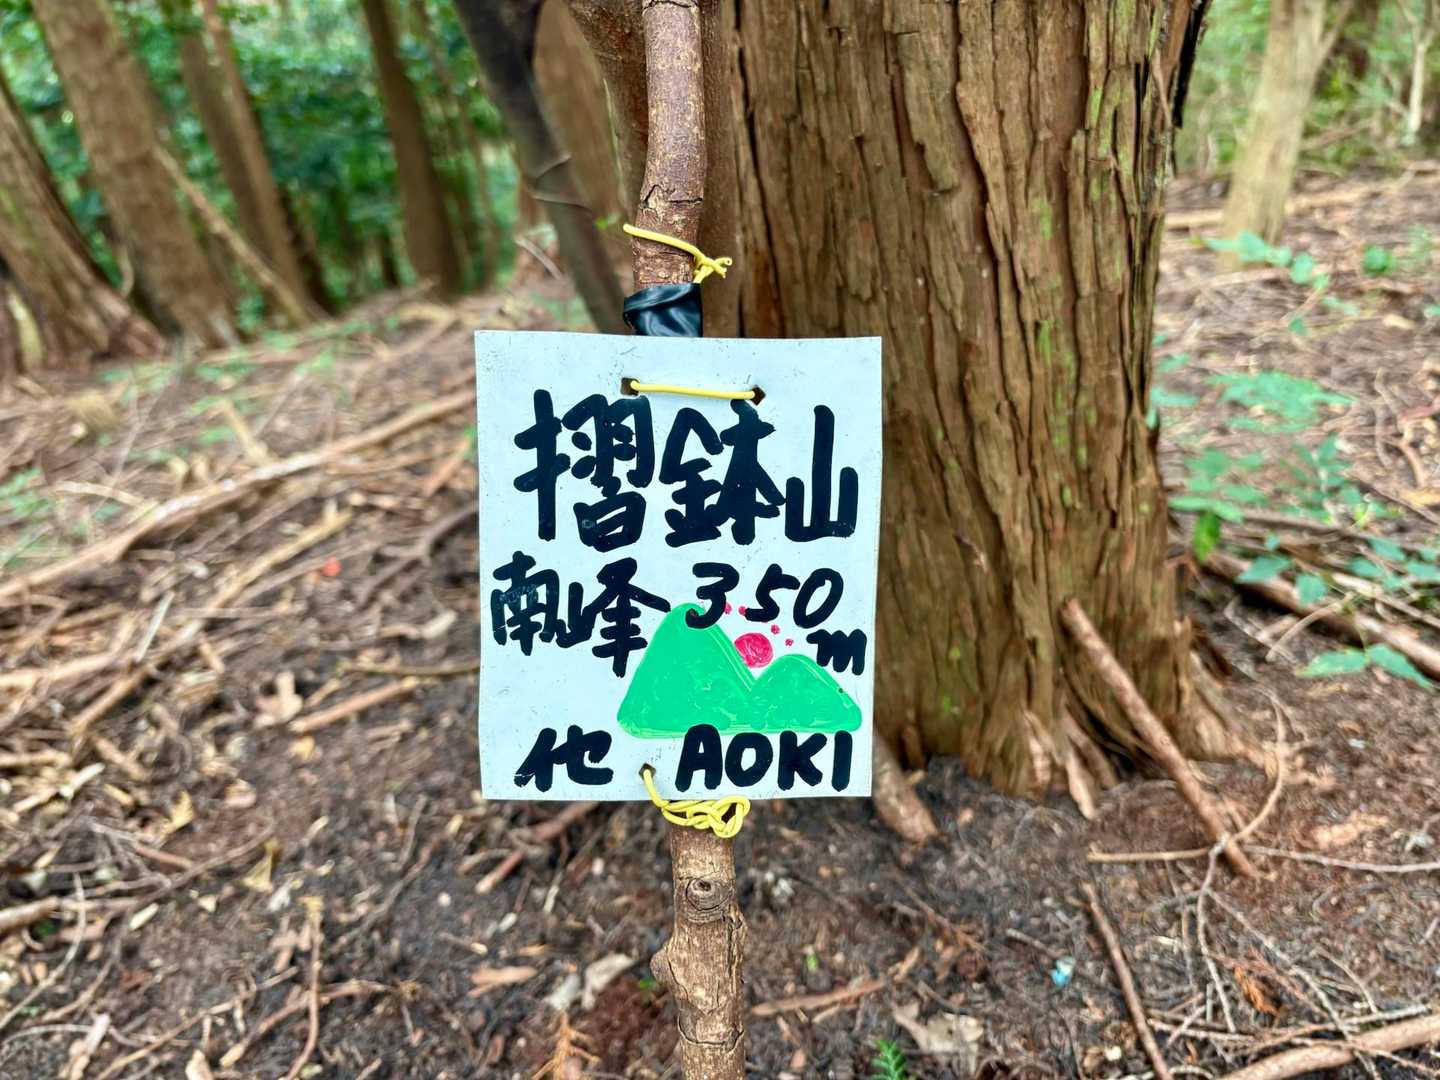 摺鉢山
南峰 350m
他 AOKI